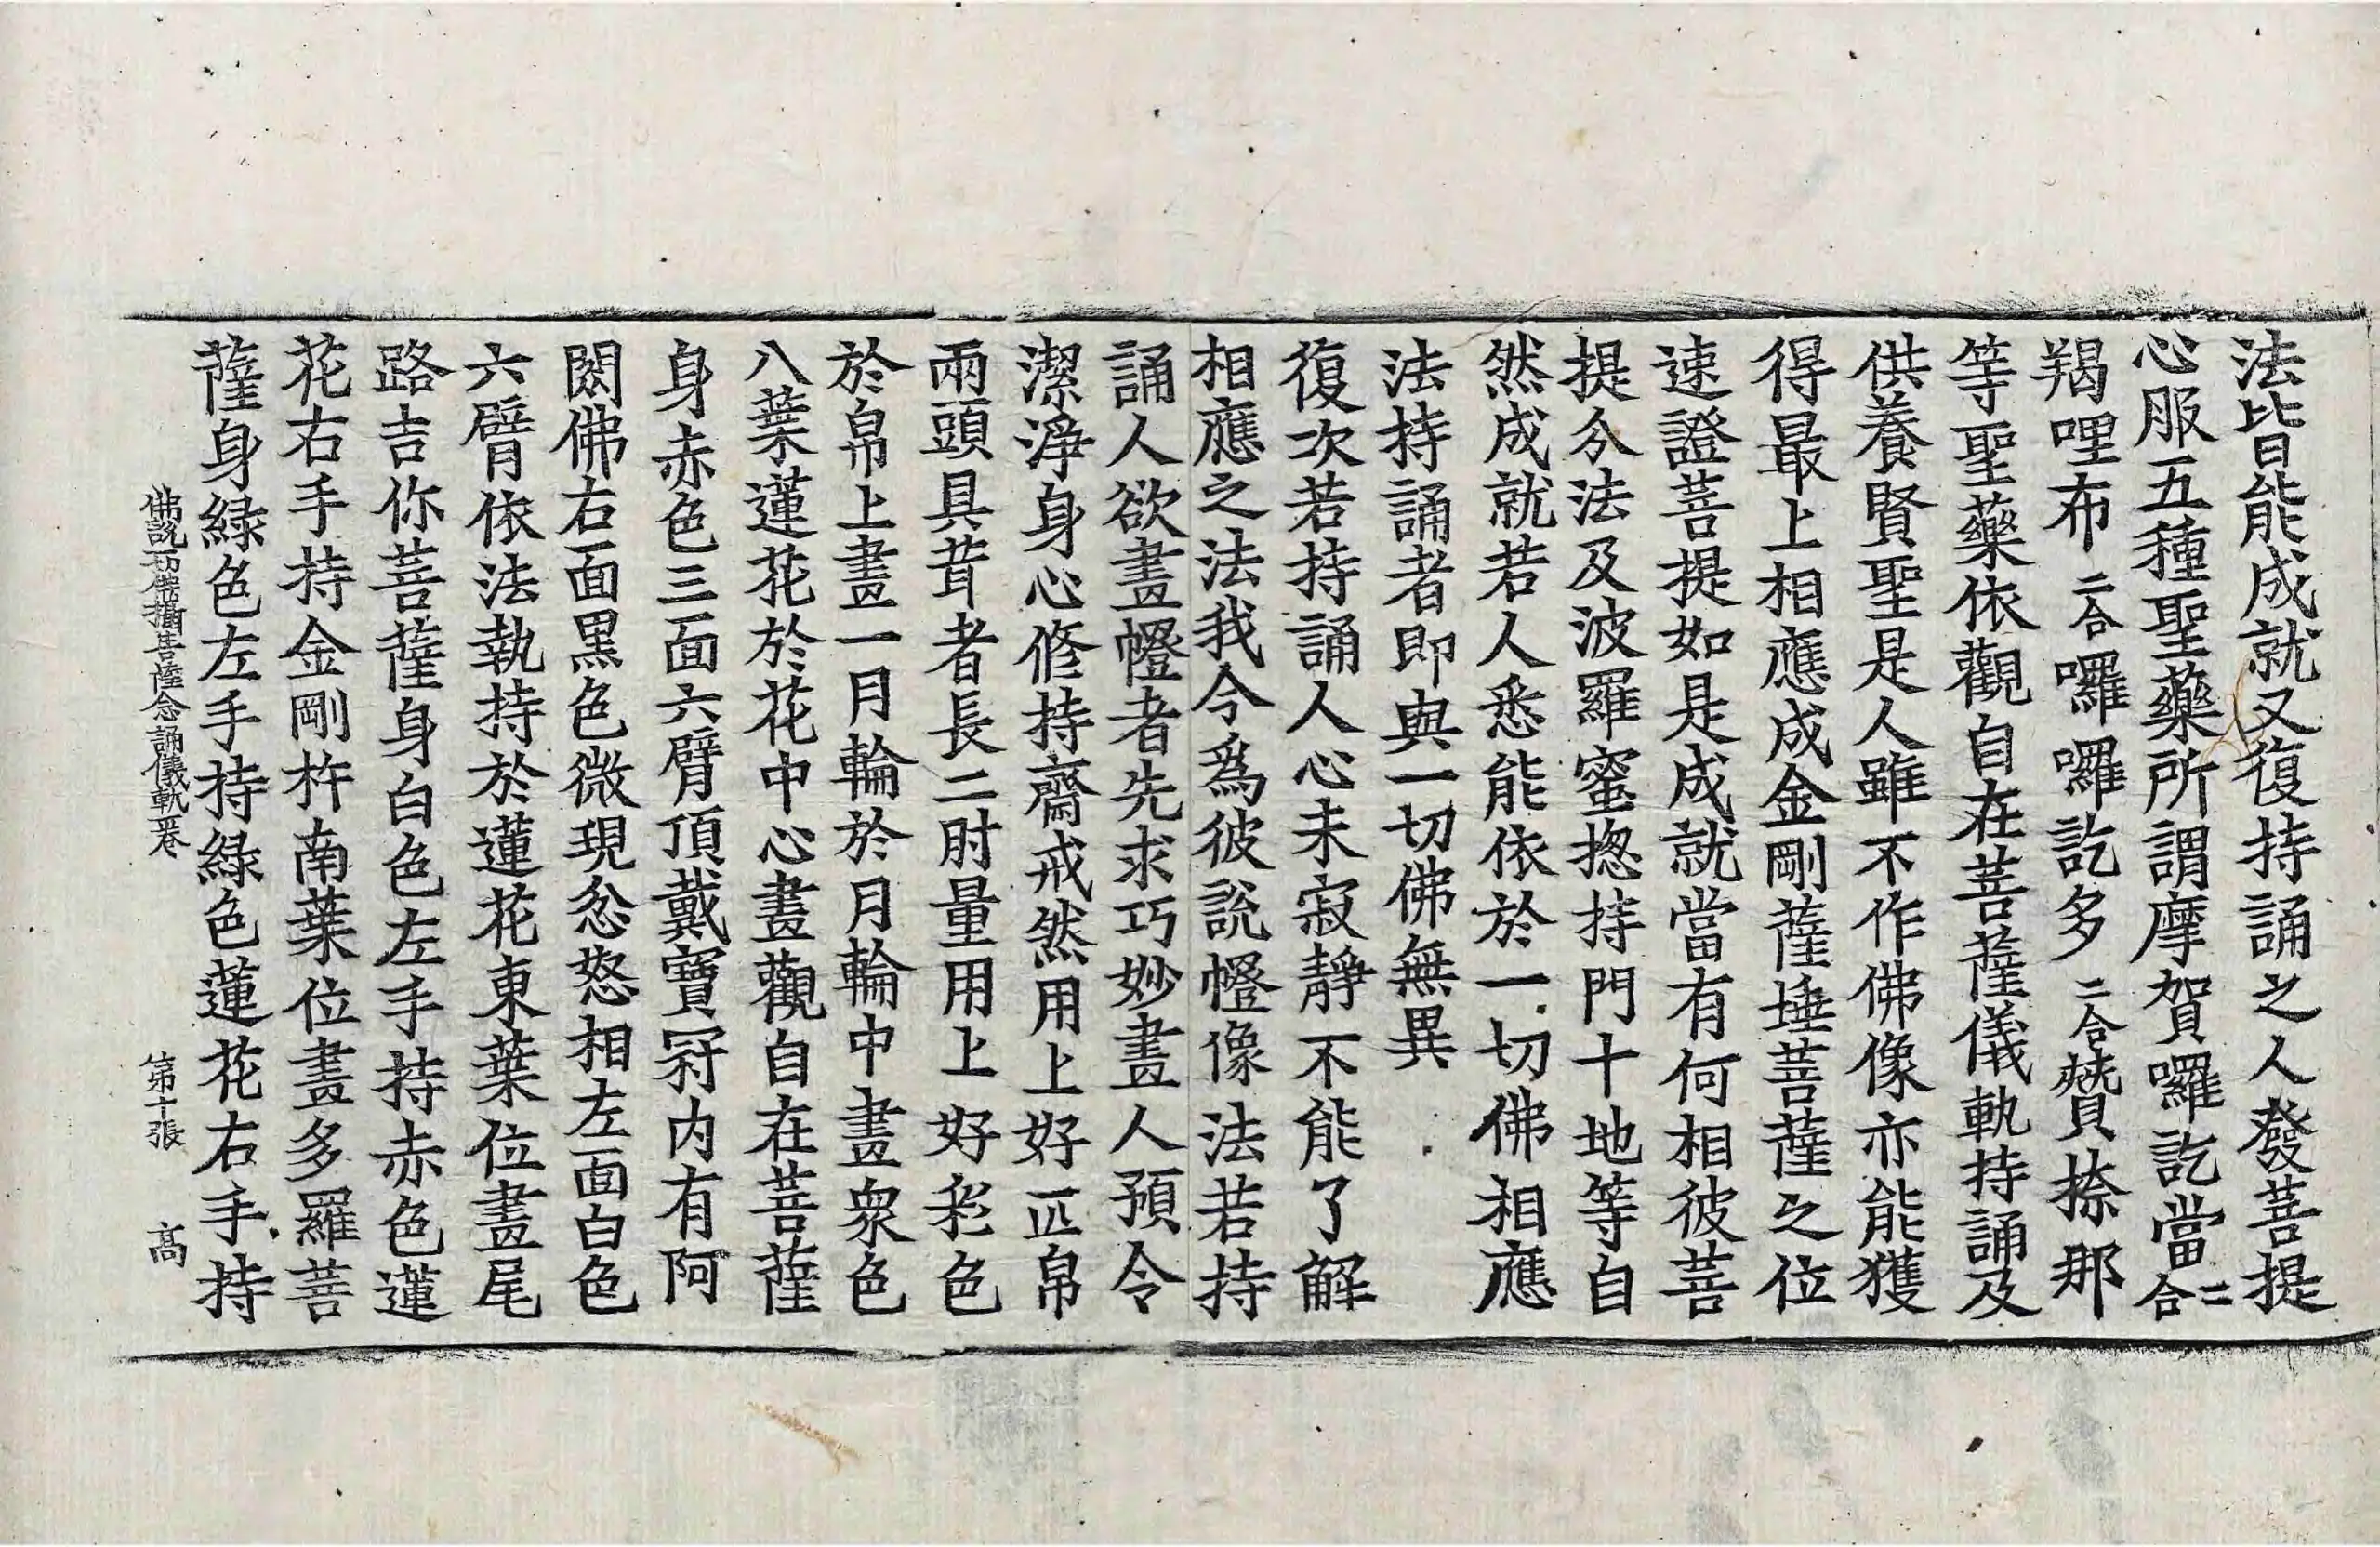 法皆能成就又復持誦之人發菩提
心服五種聖藥所謂摩賀囉訖當二合
羯哩布二合囉囉訖多二合贊捺那
等聖藥依觀自在菩薩儀軌持誦及
供養賢聖是人雖不作佛像亦能獲
得最上相應成金剛薩埵菩薩之位
速證菩提如是成就當有何相彼菩
提分法及波羅蜜揔持門十地等自
然成就若人悉能依於一切佛相應
法持誦者即與一切佛無異
復次若持誦人心未寂靜不能了解
相應之法我今為彼說㡧像法若持
誦人欲畫㡧者先求巧妙畫人預令
潔淨身心修持齋戒然用上好匹帛
兩頭具茸者長二肘量用上好彩色
於帛上畫一月輪於月輪中畫衆色
八葉蓮花於花中心畫觀自在菩薩
身赤色三面六臂頂戴寶冠内有阿
閦佛右面黑色微現忿怒相左面白色
六臂依法執持於蓮花東葉位畫尾
路吉你菩薩身白色左手持赤色蓮
花右手持金剛杵南葉位畫多羅菩
薩身緑色左手持緑色蓮花右手持
佛說一切佛攝 菩薩念誦儀軌 卷 第十張 高